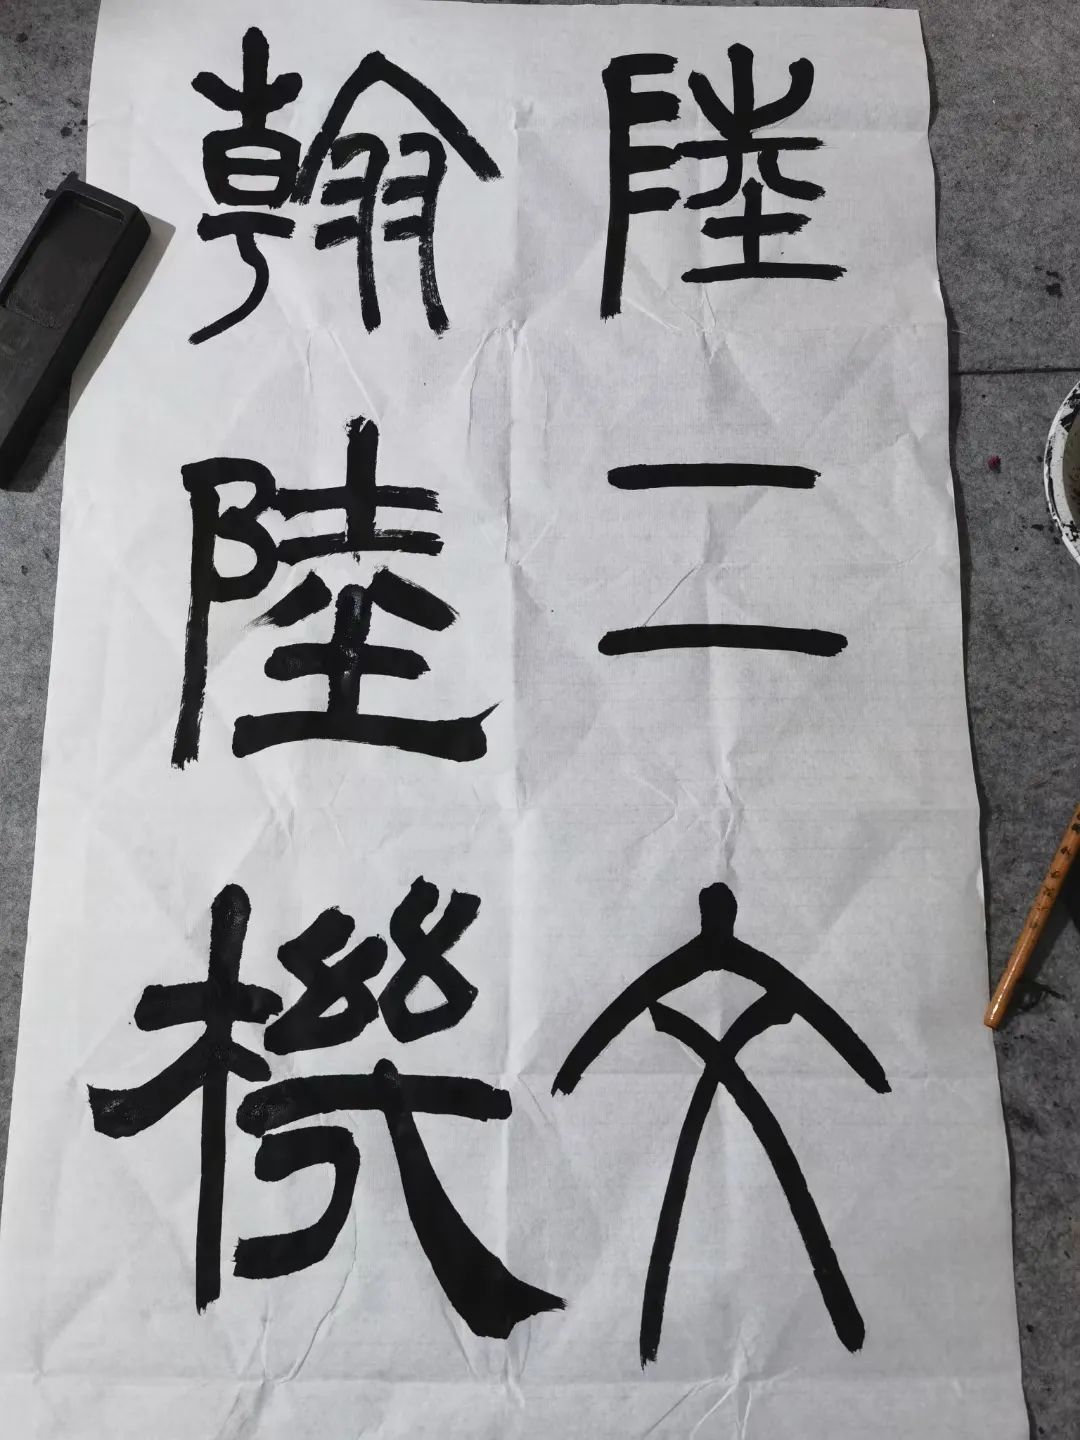 陸二文
翰陸機